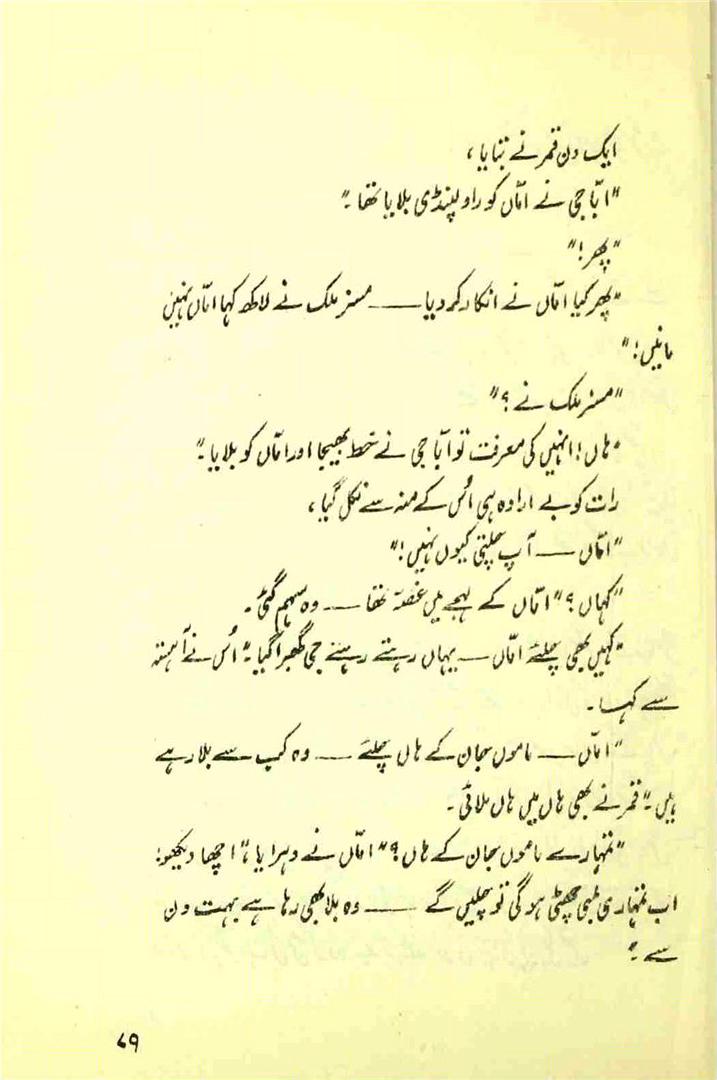 ایک دن قمر نے بتایا،
"ابّا جی نے امّاں کو راولپنڈی بلایا تھا۔"
"پھر!"
"پھر کیا امّاں نے انکار کر دیا —— مسز ملک نے لاکھ کہا امّاں نہیں
مانیں!"
"مسز ملک نے؟"
"ہاں! انہیں کی معرفت تو ابّا جی نے خط بھیجا اور امّاں کو بلایا۔"
رات کو بے ارادہ ہی اُس کے منہ سے نکل گیا،
"امّاں —— آپ چلتی کیوں نہیں!"
"کہاں؟" امّاں کے لہجے میں غصّہ تھا —— وہ سہم گئی۔
"کہیں بھی چلئے امّاں —— یہاں رہتے رہتے جی گھبرا گیا۔" اُس نے آہستہ
سے کہا۔
"امّاں —— ماموں جان کے ہاں چلئے —— وہ کب سے بلا رہے
ہیں۔" قمر نے بھی ہاں میں ہاں ملائی۔
"تمہارے ماموں جان کے ہاں؟" امّاں نے دہرایا، "اچھا دیکھو!
اب تمہاری لمبی چھٹی ہو گی تو چلیں گے —— وہ بلا بھی رہا ہے بہت دن
سے۔"
۷۹